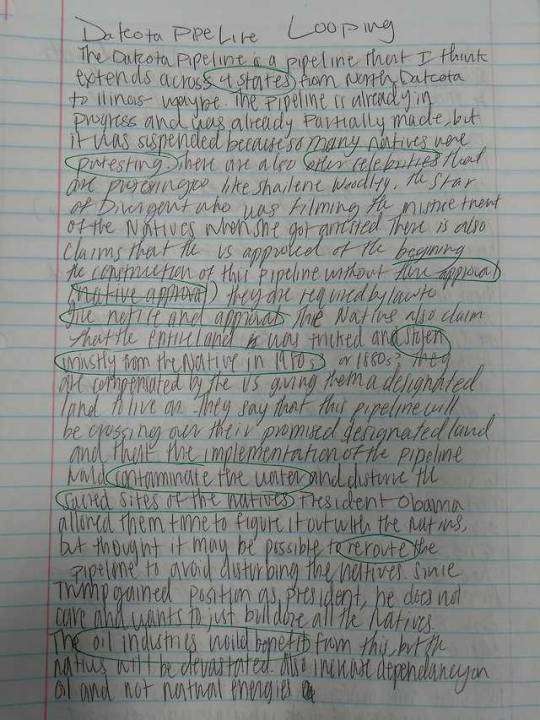 Dakota Pipeline Looping
The Dakota Pipeline is a pipeline that I think
extends across 4 states from North Dakota
to Ilinois maybe. The pipeline is already in
progress and was already partially made, but
it was suspended because so many natives were
protesting. There are also other celebrities that
are like Shailene Woodley, the star
of Divergent who was filming the mistreatment
of the Natives when she got arrested. There is also
claims that the US approved of the begining
the construction of this pipeline without their approval
(native approval) they are required by law to
give notice and approval. The Natives also claim
that the entire land was tricked and stolen
mostly from the Native in or 1880s? They
are compensated by the US giving them a designated
land to live on. They say that this pipeline will
be crossing over their promised designated land
and that the implementation of the pipeline
would contaminate the water and disturb the
sacred sites of the natives. President Obama
allowed them time to figure it out with the natives,
but thought it may be possible to reroute the
pipeline to avoid disturbing the natives. Since
Trump gained position as president, he does not
care and wants to just bulldoze all the Natives.
The oil industries would benefit from this, but the
natives will be devastated. Also increase dependancy on
oil and not natural energies